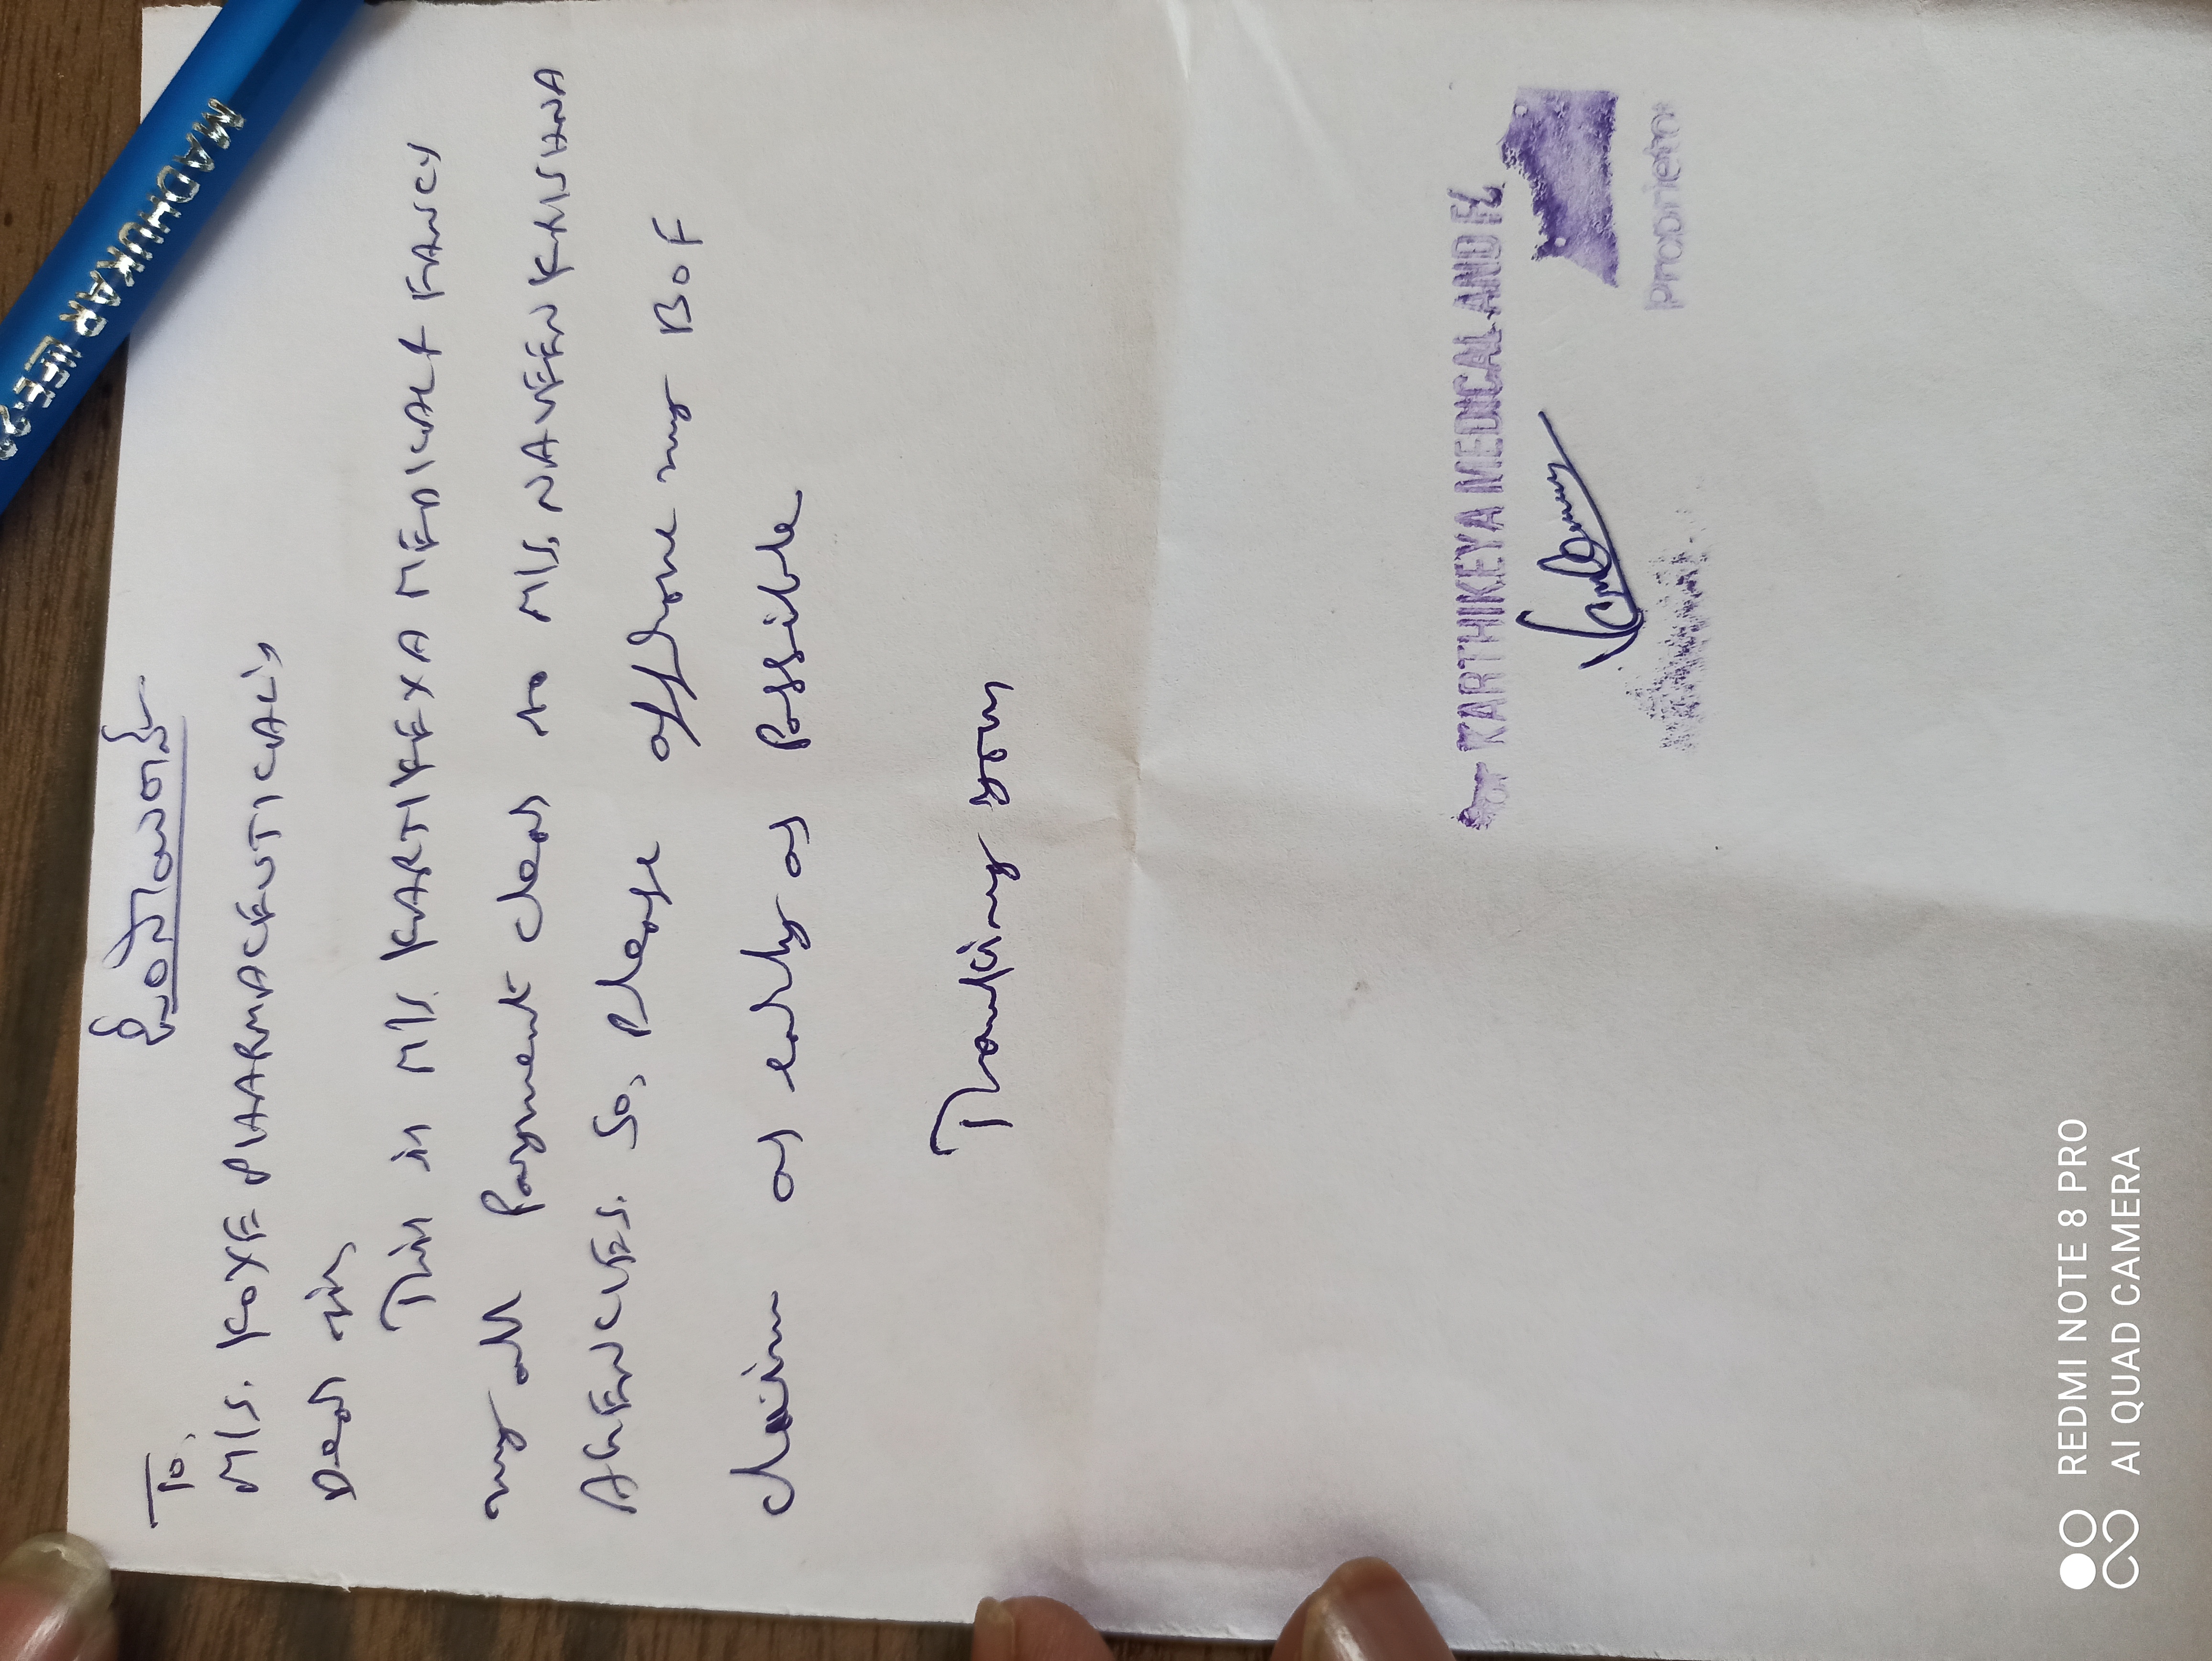 ಶ್ರೀರಂಗಪಟ್ಟಣ
To,
M/s. KOYE PHARMACEUTICAL'S
Dear sir,
This is M/s. KARTIKEYA MEDICAL & FANCY
my all Payment clear to M/s, NAVEEN KRISHNA
AGENCIES. So, Please my BOF
claim as early as Possible
Thanking you
For KARTHIKEYA MEDICAL AND
Proprietor
MADHUKAR LIFE
REDMI NOTE 8 PRO
AI QUAD CAMERA